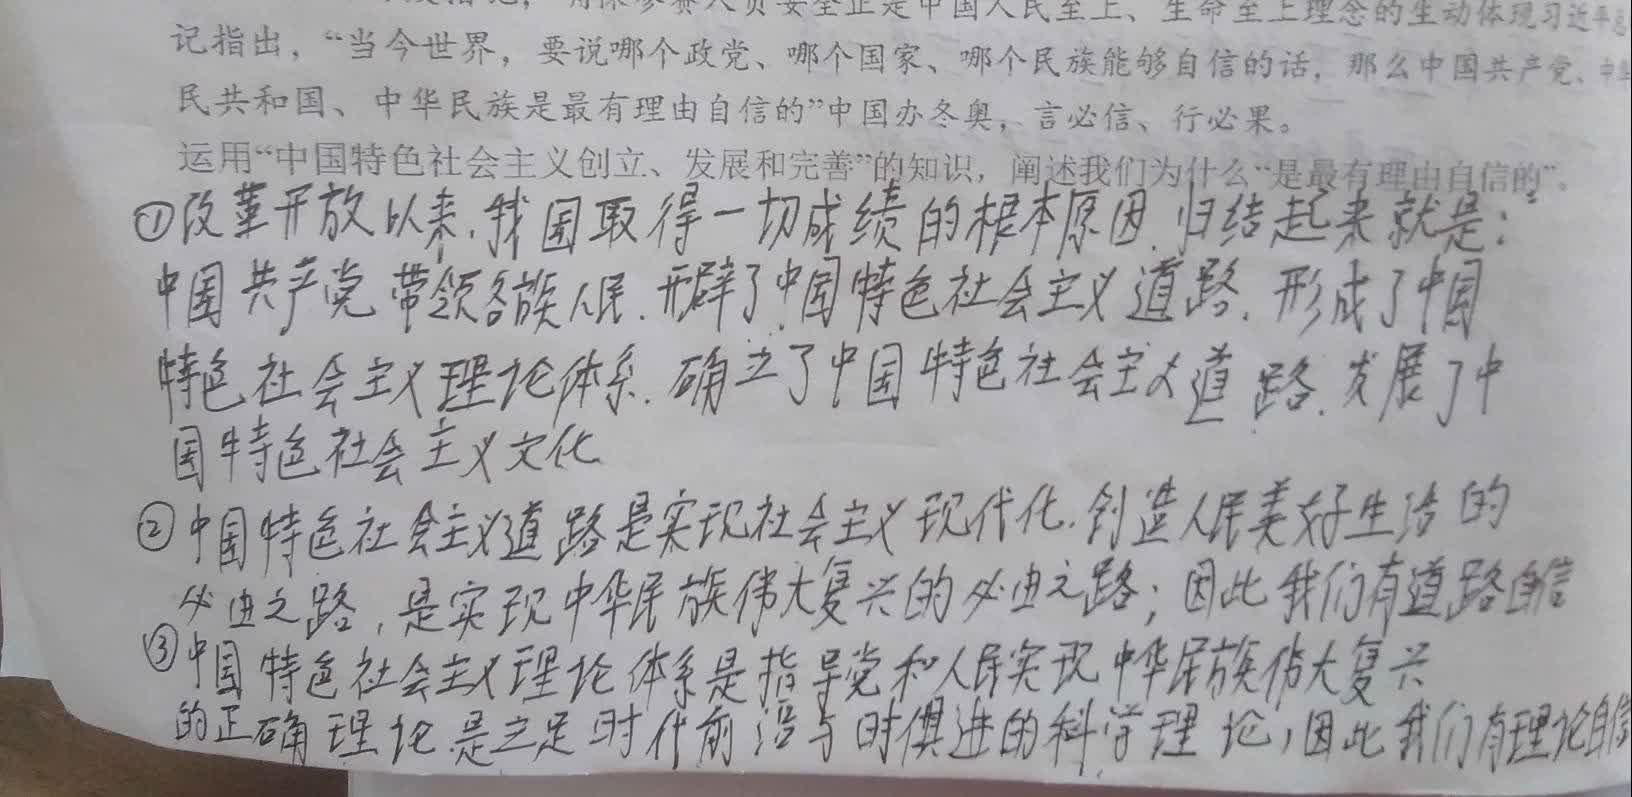 确保参赛人员安全正是中国人民至上、生命至上理念的生动体现习近平总
记指出，“当今世界，要说哪个政党、哪个国家、哪个民族能够自信的话，那么中国共产党、中华
民共和国、中华民族是最有理由自信的”中国办冬奥，言必信、行必果。
运用“中国特色社会主义创立、发展和完善”的知识，阐述我们为什么“是最有理由自信的”。
①改革开放以来,我国取得一切成绩的根本原因,归结起来就是:
中国共产党带领各族人民.开辟了中国特色社会主义道路.形成了中国
特色社会主义理论体系.确立了中国特色社会主义道路.发展了中
国特色社会主义文化
②中国特色社会主义道路是实现社会主义现代化.创造人民美好生活的
必由之路,是实现中华民族伟大复兴的必由之路;因此我们有道路自信
③中国特色社会主义理论体系是指导党和人民实现中华民族伟大复兴
的正确理论是立足时代前沿与时俱进的科学理论,因此我们有理论自信